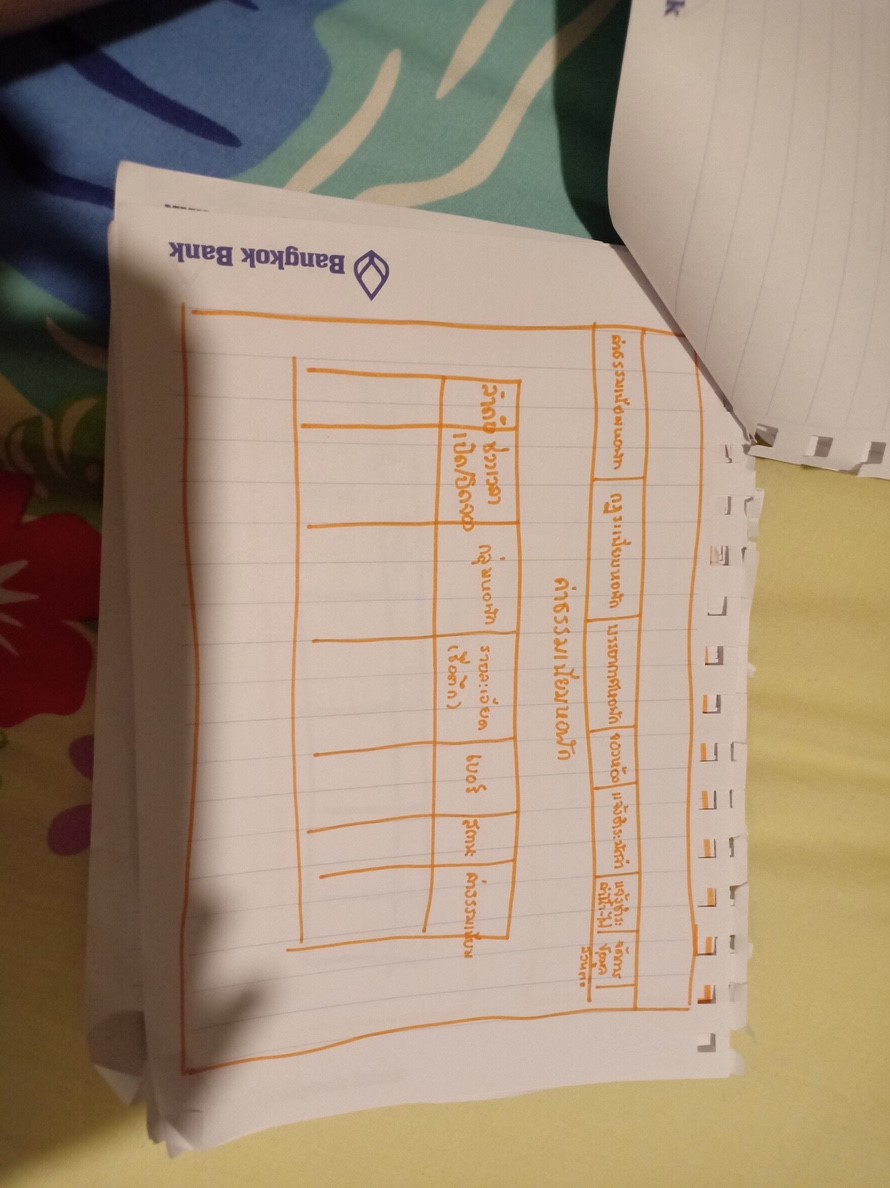 k
ค่าธรรมเนียมหอพัก
กฎระเบียบหอพัก
บรรยากาศหอพัก
จองห้อง
แจ้งชำระมัดจำ
แจ้งชำระ
ค่าน้ำ-ไฟ
จัดการ
ข้อมูล
ส่วนตัว
ค่าธรรมเนียมหอพัก
ลำดับ
ช่วงเวลา
เปิด/ปิดจอง
กลุ่มหอพัก
รายละเอียด
(ชื่อตึก)
เบอร์
สถานะ
ค่าธรรมเนียม
Bangkok Bank